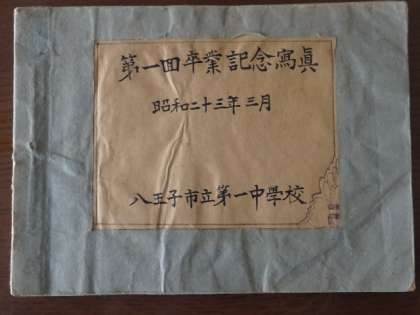 第一回卒業記念寫眞
昭和二十三年三月
八王子市立第一中学校